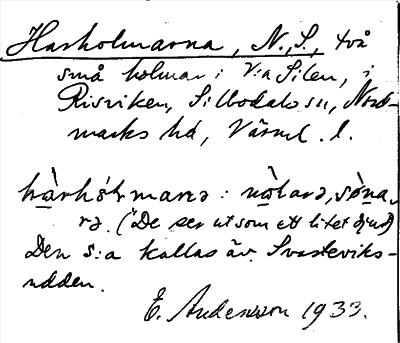 Harholmarna, N., S., två
små holmar i V:a Silen, i
Risviken, Silbodals sn, Nord-
marks hd, Värml. l.
hàrhól̀marnə : nòlarə, sø̀na-
rə. ("De ser ut som ett litet djur)
Den S:a kallas äv. Svarteviks-
udden.
E. Andersson 1933.